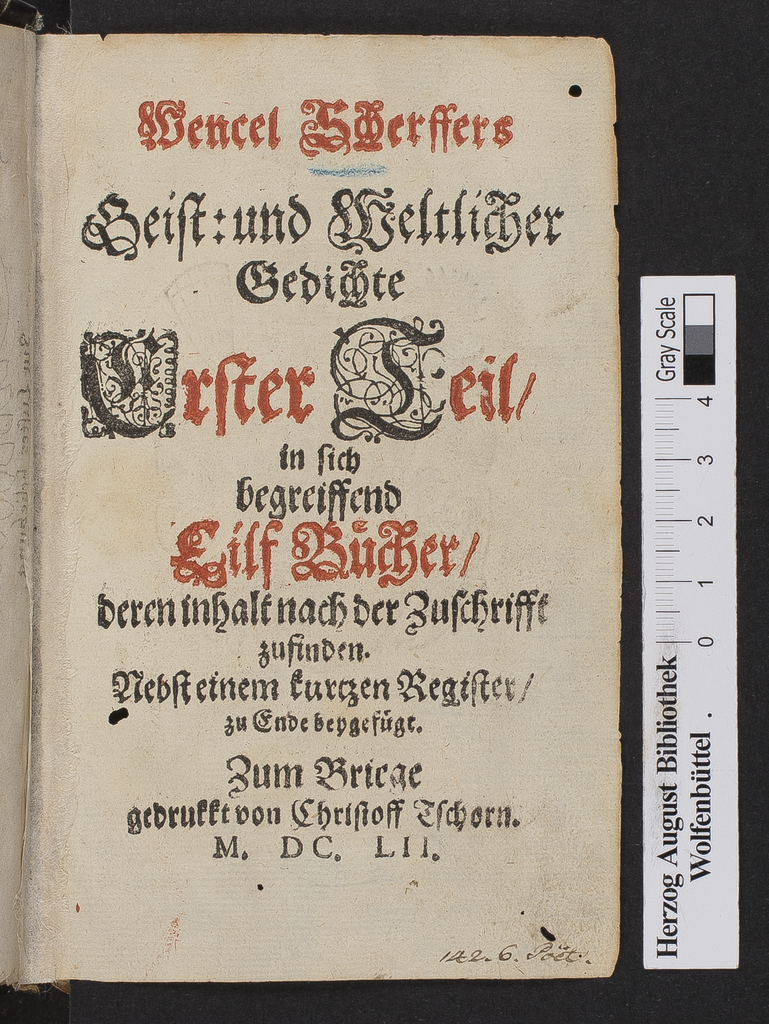 Wencel Scherffers
Geist: und Weltlicher
Gedichte
Erster Teil/
in sich
begreiffend
Eilf Bücher/
deren inhalt nach der Zuschrifft
zufinden.
Nebst einem kurtzen Register/
zu Ende beygefügt.
Zum Briege
gedrukkt von Christoff Tschorn.
M. DC. LII.
142.6. Poët.
Gray Scale
4
3
2
1
0
Herzog August Bibliothek
Wolfenbüttel .